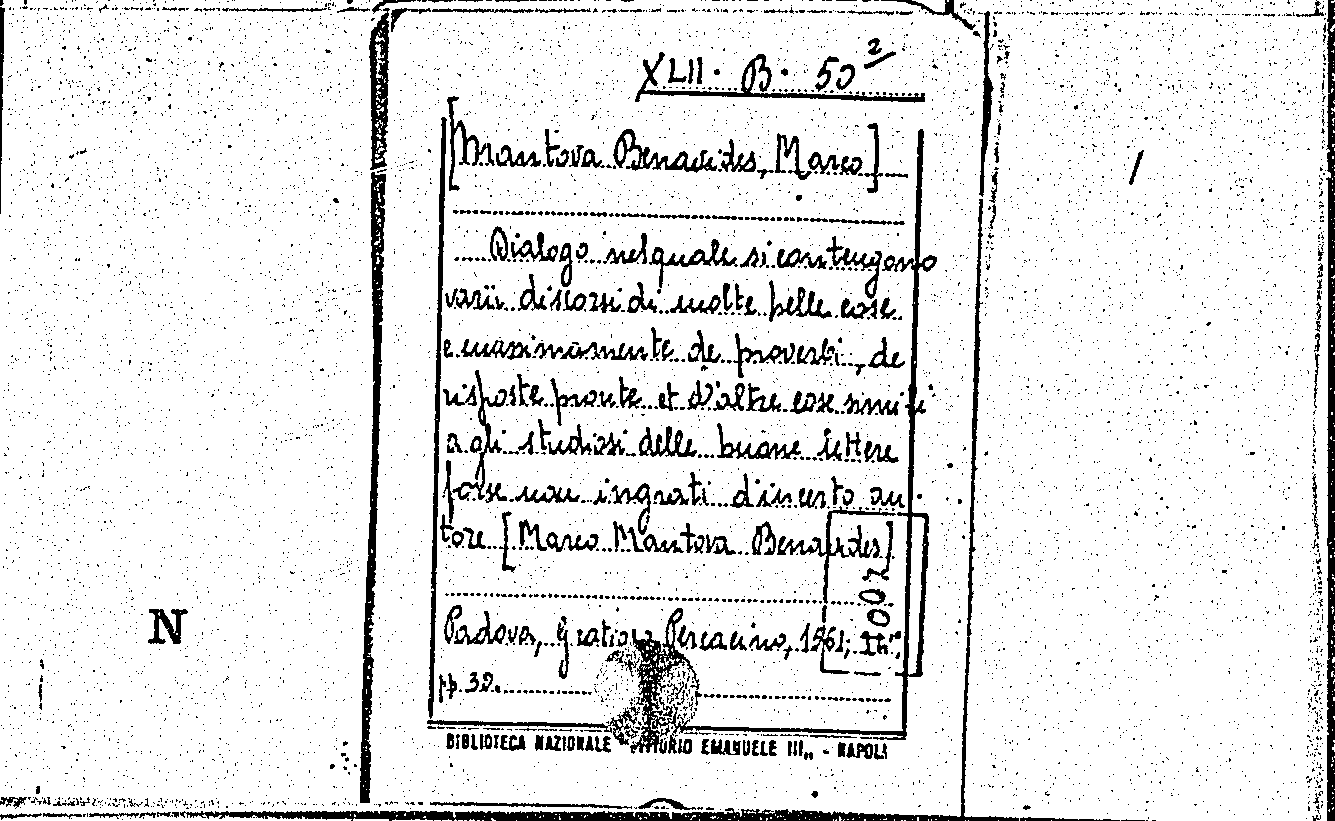 XLII. B. 50²
[Mantova Benavides, Marco]
Dialogo nel quale si contengono
varii discorsi di molte belle cose
e massimamente de proverbi, de
risposte pronte et d'altre cose simili
a gli studiosi delle buone lettere
forse non ingrati d'incerto au-
tore [Marco Mantova Benavides]
002
Padova, Gratioso Percacino, 1561;
pp. 39.
BIBLIOTECA NAZIONALE "VITTORIO EMANUELE III„ - NAPOLI
N